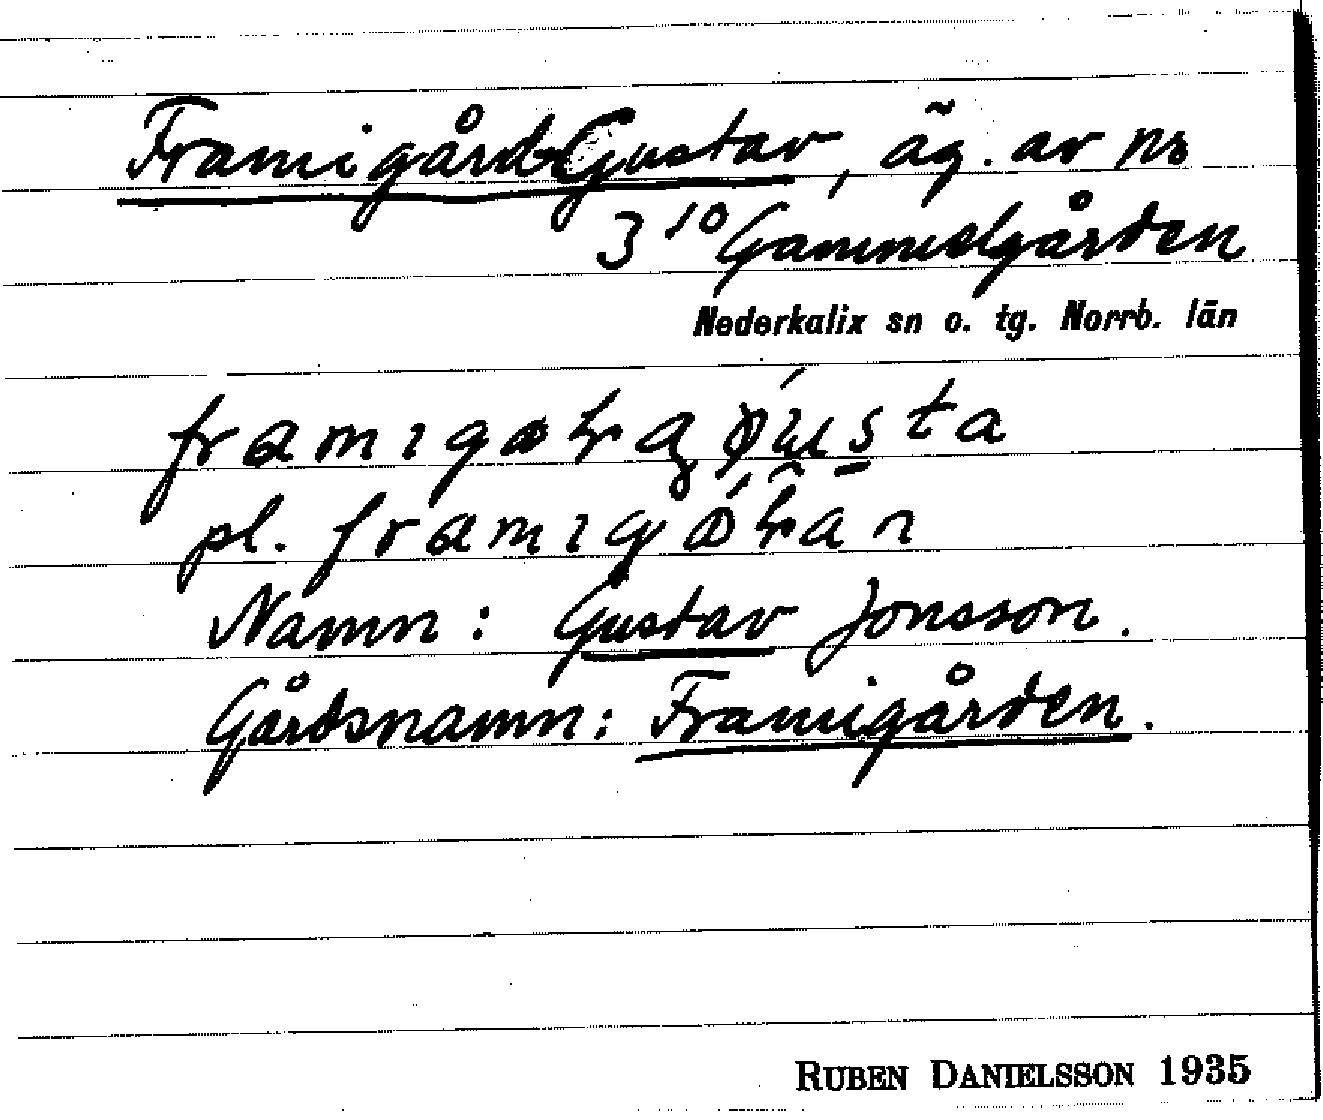 Framigårds Gustav, äg. av nr
3¹⁰ Gammelgården
Nederkalix sn o. tg. Norrb. län
pl.
Namn: Gustav Jonsson.
Gårdsnamn: Framigården.
RUBEN DANIELSSON 1935